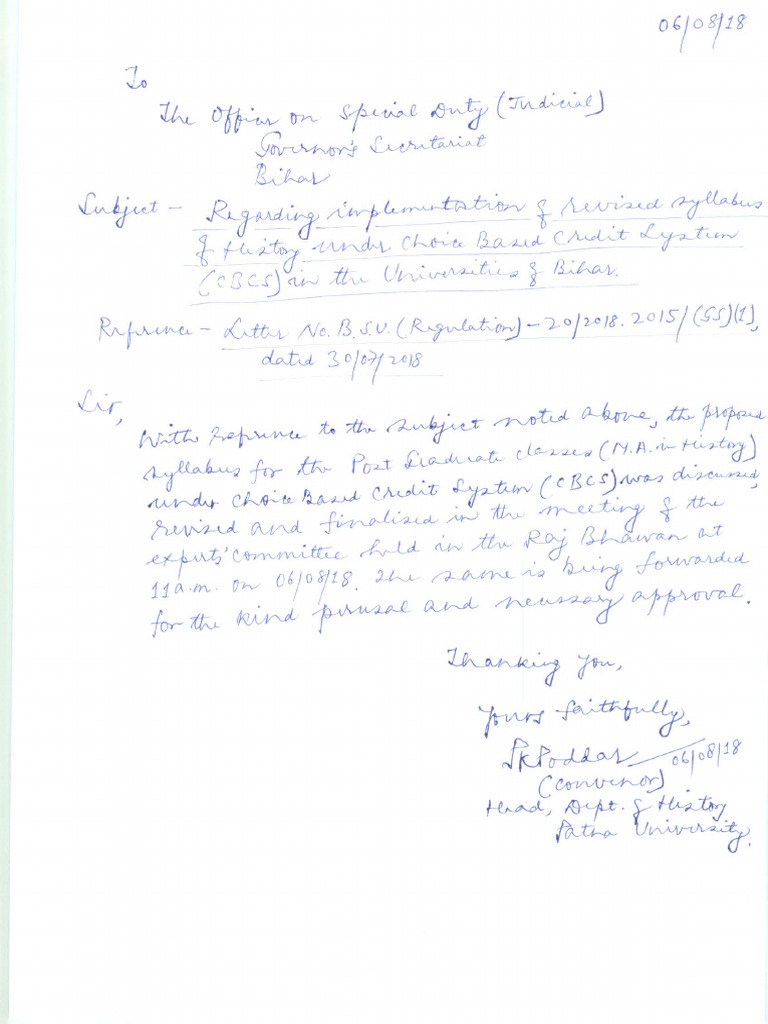 06/08/18
To
The Officer on Special Duty (Judicial)
Governor's Secretariat
Bihar
Subject - Regarding implementation of revised syllabus
of History under Choice Based Credit System
(CBCS) in the Universities of Bihar.
Reference - Letter No. B.S.U. (Regulation) - 20/2018. 2015/(GS)(1),
dated 30/07/2018
Sir,
With reference to the subject noted above, the proposed
syllabus for the Post Graduate classes (M.A. in History)
under Choice Based Credit System (CBCS) was discussed,
revised and finalised in the meeting of the
experts' committee held in the Raj Bhawan at
11 a.m. on 06/08/18. The same is being forwarded
for the kind perusal and necessary approval.
Thanking you,
Yours faithfully,
PKPoddar 06/08/18
(Convenor)
Head, Dept. of History
Patna University.